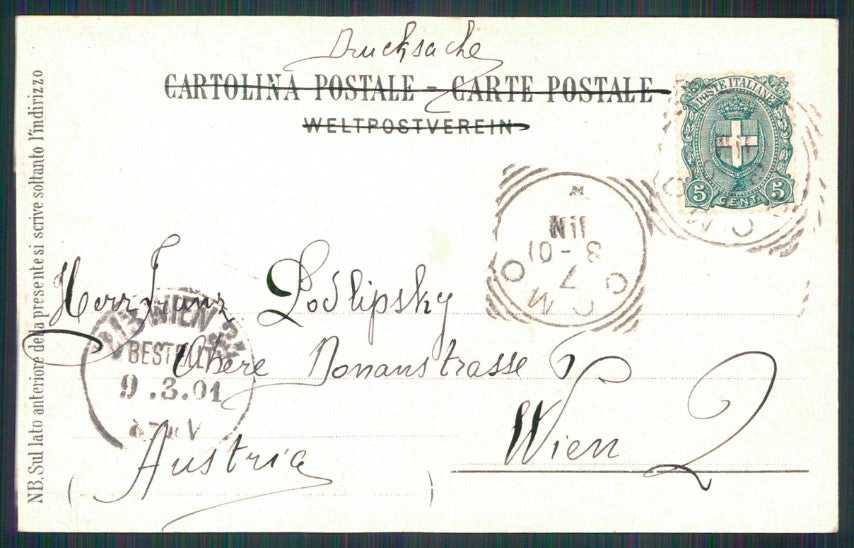 Drucksache
CARTOLINA POSTALE - CARTE POSTALE
WELTPOSTVEREIN
POSTE ITALIANE
5 CENT. 5
COMO
7
3-01
Herr Franz Lodlipsky
WIEN
BESTELLT
9.3.01
V
Obere Donanstrasse 6
Wien 2
Austria
NB. Sul lato anteriore della presente si scrive soltanto l'indirizzo